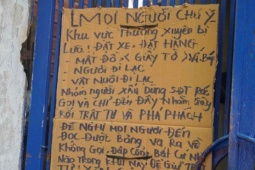 MỌI NGƯỜI CHÚ Ý
KHU VỰC THƯỜNG XUYÊN BỊ
LỪA! ĐẶT XE - ĐẶT HÀNG
- MẤT ĐỒ GIẤY TỜ
- NGƯỜI ĐI LẠC
- VẬT NUÔI ĐI LẠC
NHÓM NGƯỜI XẤU DỤNG SĐT
GỌI VÀ CHỈ ĐẾN ĐÂY NHẬN
RỐI TRẬT TỰ VÀ PHÁ PHÁCH
ĐỀ NGHỊ MỌI NGƯỜI ĐẾN
ĐỌC ĐƯỢC BẢNG VÀ RA VỀ
KHÔNG GỌI, ĐẬP CỔNG BẤT CỨ
NÀO TRONG KHU NÀY ĐỂ